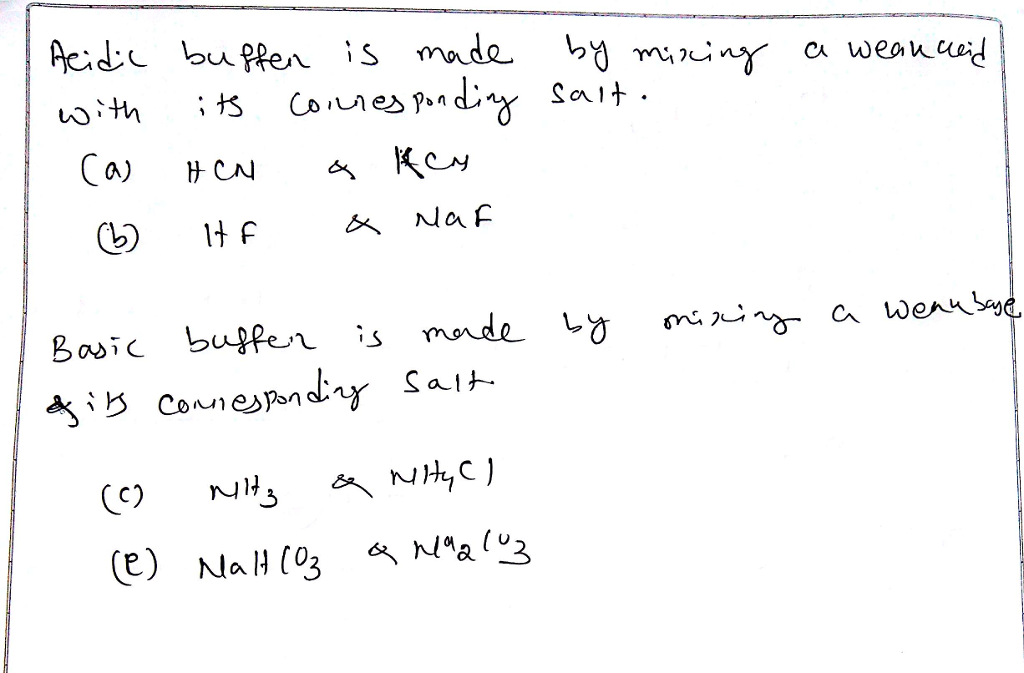 Acidic buffer is made by mixing a weak acid
with its corresponding salt.
(a) HCN & KCN
(b) HF & NaF
Basic buffer is made by mixing a weak base
& its corresponding salt
(c) NH3 & NH4Cl
(e) NaHCO3 & Na2CO3